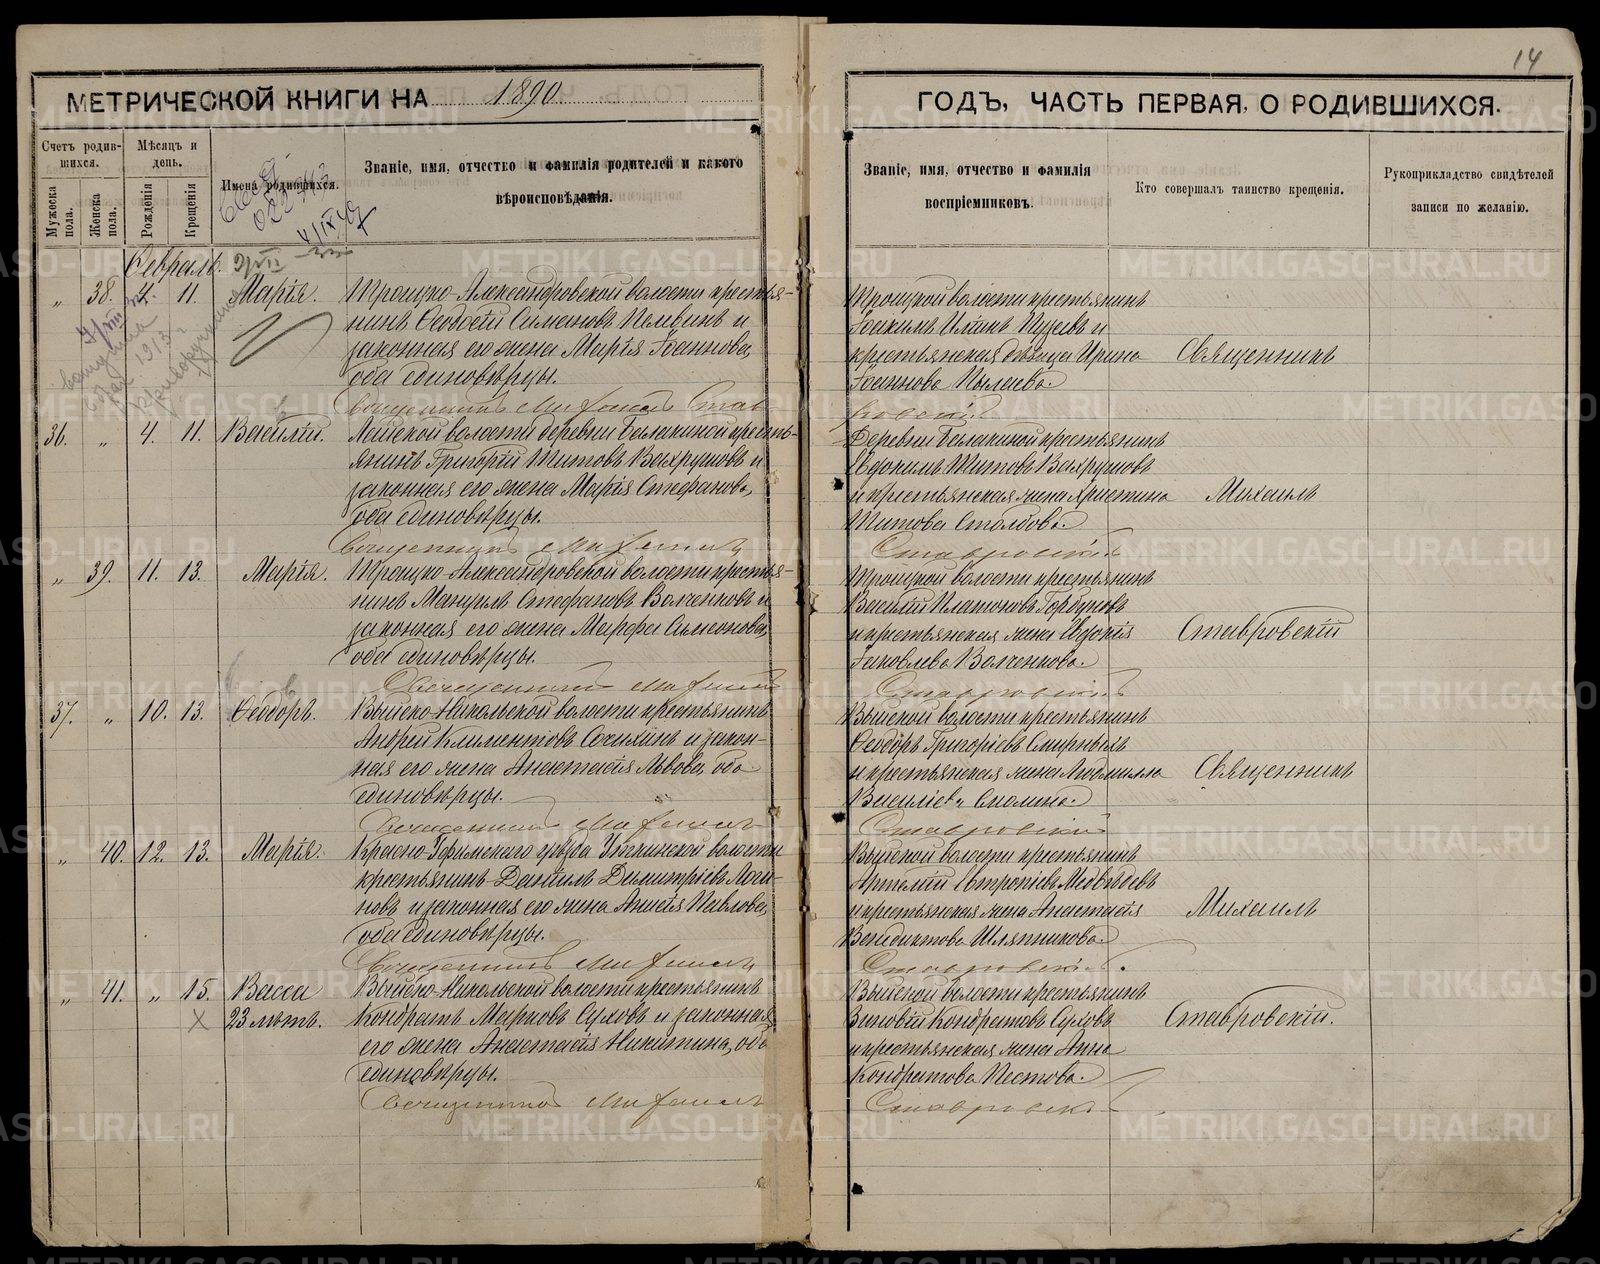 14
МЕТРИЧЕСКОЙ КНИГИ НА 1890
ГОДЪ, ЧАСТЬ ПЕРВАЯ, О РОДИВШИХСЯ.
Счетъ родив-
шихся.
Мѣсяцъ и
день.
Мужеска
пола.
Женска
пола.
Рожденія
Крещенія
Имена родившихся.
Званіе, имя, отчество и фамилія родителей и какого
вѣроисповѣданія.
Званіе, имя, отчество и фамилія
воспріемниковъ.
Кто совершалъ таинство крещенія.
Рукоприкладство свидѣтелей
записи по желанію.
Февраль.
„ 38. 4. 11. Марія. Троицко-Александровской волости крестья-
нинъ Ѳеодосій Симеоновъ и
законная его жена Марія Іоаннова,
оба единовѣрцы.
Троицкой волости крестьянинъ
Іоакимъ Ильинъ Пузеевъ и
крестьянская дѣвица Ирина
Іоаннова Пылаева.
Священникъ
Священникъ Михаилъ Став-
ровскій
36. „ 4. 11. Василій. Лайской волости деревни Балакиной кресть-
янинъ Григорій Титовъ Вахрушовъ и
законная его жена Марія Стефанова,
оба единовѣрцы.
Деревни Балакиной крестьянинъ
Евдокимъ Титовъ Вахрушовъ
и крестьянская жена Христина
Титова Столбова.
Михаилъ
Священникъ Михаилъ
Ставровскій
„ 39. 11. 13. Марія. Троицко-Александровской волости крестья-
нинъ Мануилъ Стефановъ Волченковъ и
законная его жена Марфа Симеонова,
оба единовѣрцы.
Троицкой волости крестьянинъ
Василій Платоновъ Горбуновъ
и крестьянская жена Евдокія
Іаковлева Волченкова.
Ставровскій
Священникъ Михаилъ
Ставровскій
37. „ 10. 13. Ѳеодоръ. Выйско-Никольской волости крестьянинъ
Андрей Климентовъ Сочихинъ и закон-
ная его жена Анастасія Львова, оба
единовѣрцы.
Выйской волости крестьянинъ
Ѳеодоръ Григоріевъ Смирныхъ
и крестьянская жена Людмилла
Василіева Смолина.
Священникъ
Священникъ Михаилъ
Ставровскій
„ 40. 12. 13. Марія. Красно-Уфимскаго уѣзда Уткинской волости
крестьянинъ Даніилъ Димитріевъ Логи-
новъ и законная его жена Анисія Павлова,
оба единовѣрцы.
Выйской волости крестьянинъ
Артемій Евтропіевъ Медвѣдевъ
и крестьянская жена Анастасія
Венедиктова Шляпникова.
Михаилъ
Священникъ Михаилъ
Ставровскій.
„ 41. „ 15. Васса Выйско-Никольской волости крестьянинъ
23 лѣтъ. Кондратъ Марковъ Суховъ и законная
его жена Анастасія Никитина, оба
единовѣрцы.
Выйской волости крестьянинъ
Зиновій Кондратовъ Суховъ
и крестьянская жена Анна
Кондратова Пестова.
Ставровскій.
Священникъ Михаилъ
Ставровскій
METRIKI.GASO-URAL.RU